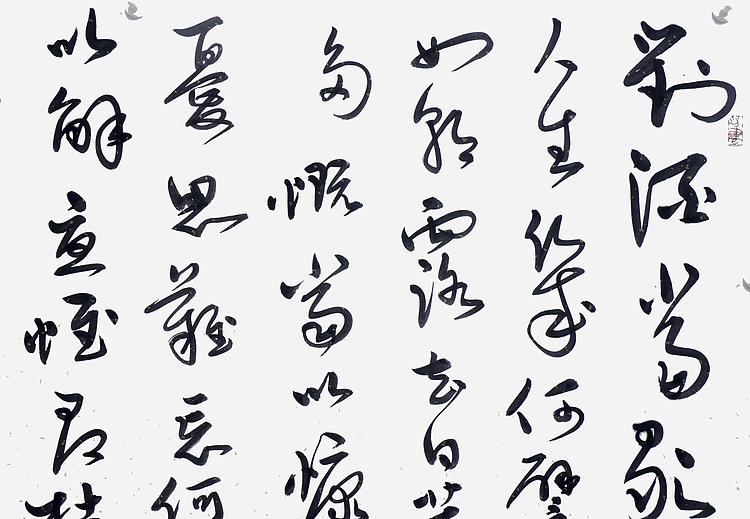 對酒當歌
人生幾何譬
如朝露去日苦
多慨當以慷
憂思難忘何
以解憂惟有杜